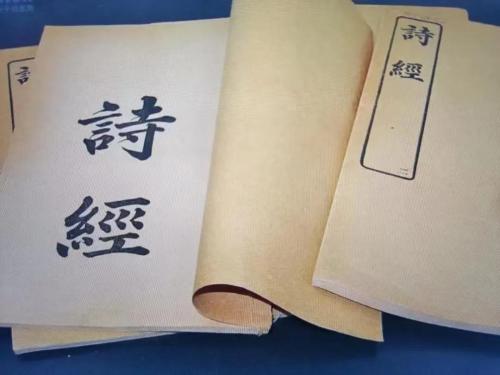 詩
經
詩
經
二